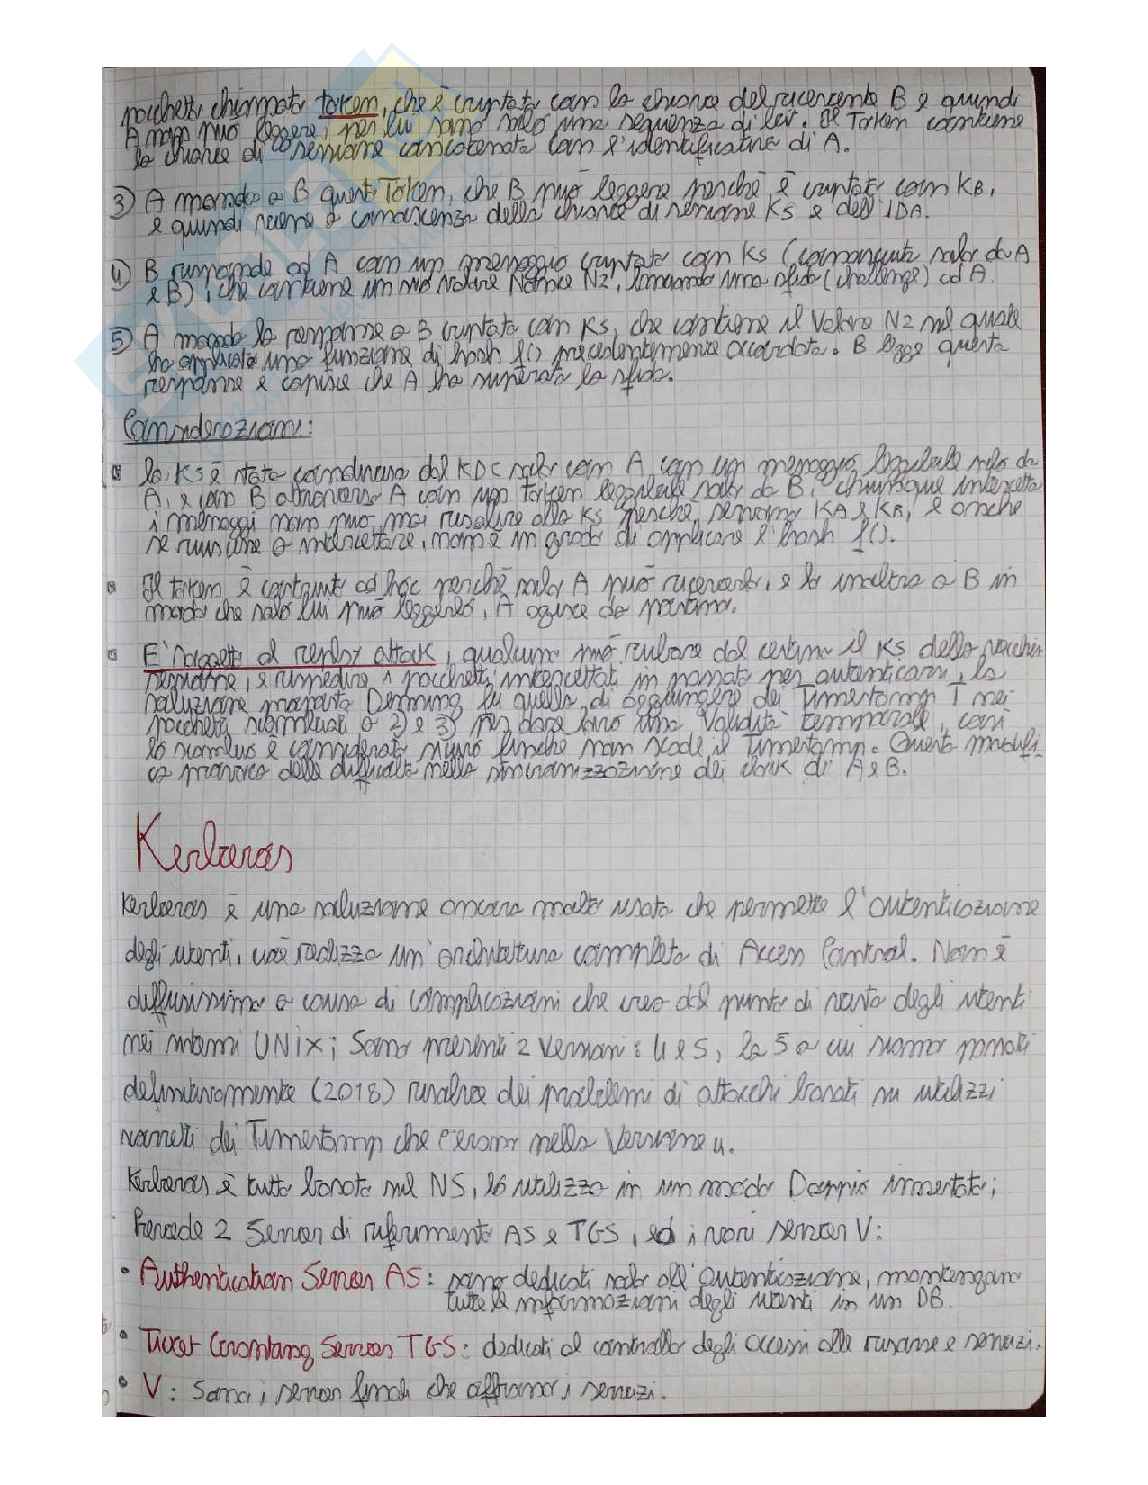 pacchetto chiamato token, che è criptato con la chiave del ricevente B e quindi
A non può leggere, per lui sono solo una sequenza di bit. Il Token contiene
la chiave di sessione concatenata con l'identificativo di A.
3) A manda a B questo Token, che B può leggere perchè è criptato con KB,
e quindi viene a conoscenza della chiave di sessione KS e dell'IDA.
4) B risponde ad A con un messaggio criptato con KS (conosciuta solo da A
e B), che contiene un suo valore Nonce N2, lanciando una sfida (challenge) ad A.
5) A manda la risposta a B criptata con KS, che contiene il Valore N2 sul quale
ha applicato una funzione di hash f() precedentemente accordata. B legge questa
risposta e capisce che A ha superato la sfida.
Considerazioni:
la KS è stata condivisa dal KDC solo con A con un messaggio leggibile solo da
A, e con B attraverso A con un token leggibile solo da B, chiunque intercetta
i messaggi non può mai risalire alla KS perchè servono KA e KB, e anche
se riuscisse a intercettare, non è in grado di applicare l'hash f().
Il token è costruito ad hoc perchè solo A può riceverlo, e lo inoltra a B in
modo che solo lui può leggerlo, A agisce da postino.
E' soggetto al replay attack, qualcuno può rubare dal cestino il KS della vecchia
sessione, e rispedire i pacchetti intercettati in passato per autenticarsi, la
soluzione proposta Denning fu quella di aggiungere dei Timestamp T nei
pacchetti scambiati a 2) e 3) per dare loro una validità temporale, così
lo scambio è considerato sicuro finchè non scade il Timestamp. Questa modifi
ca provoca delle difficoltà nella sincronizzazione dei clock di A e B.
Kerberos
Kerberos è una soluzione ancora molto usata che permette l'autenticazione
degli utenti, cioè realizza un'architettura completa di Access Control. Non è
diffusissimo a causa di complicazioni che crea dal punto di vista degli utenti
nei sistemi UNIX; Sono presenti 2 Versioni: 4 e 5, la 5 a cui siamo passati
definitivamente (2018) risolve dei problemi di attacchi basati su utilizzi
scorretti dei Timestamp che c'erano nella Versione 4.
Kerberos è tutto basato sul NS, lo utilizza in un modo Doppio innestato;
Prevede 2 Server di riferimento AS e TGS, ed i vari server V:
• Authentication Server AS: sono dedicati solo all'autenticazione, mantengono
tutte le informazioni degli utenti in un DB.
• Ticket Granting Server TGS: dedicati al controllo degli accessi alle risorse e servizi.
• V: Sono i server finali che offrono i servizi.